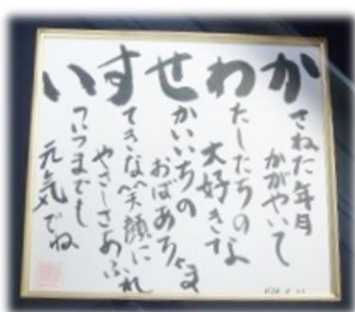 かわせすい
さねた年月
かがやいて
たしたちの
大好きな
かいいちの
おばあちゃま
てきな笑顔に
やさしさあふれ
ついつまでも
元気でね